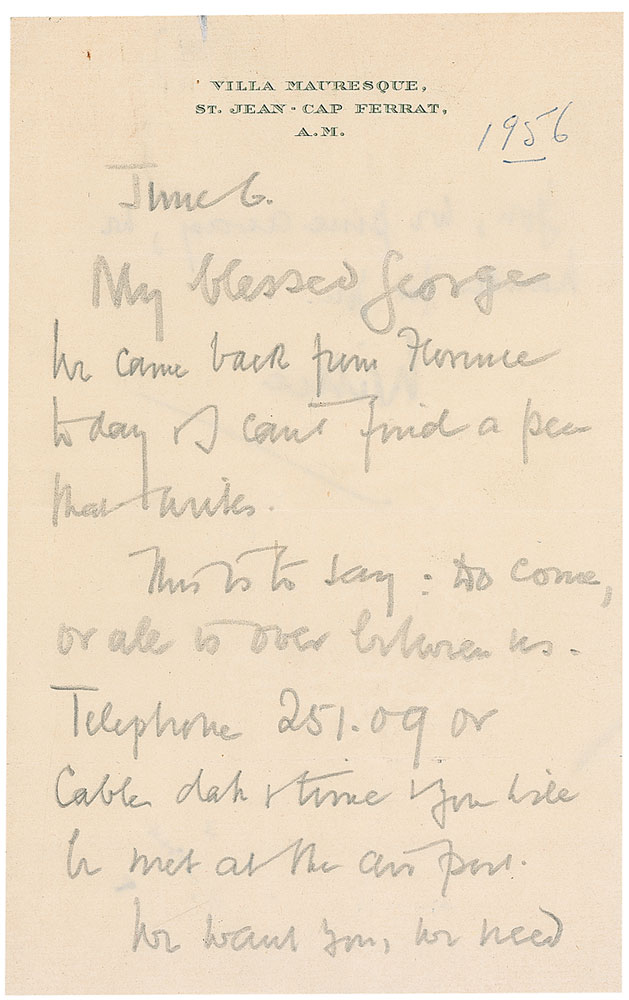 VILLA MAURESQUE,
ST. JEAN - CAP FERRAT,
A.M.
1956
June 6.
My blessed George
We came back from Florence
today & I cant find a pen
that writes.
This is to say : do come,
or all is over between us.
Telephone 251.09 or
Cable date & time & you will
be met at the air port.
We want you, we need